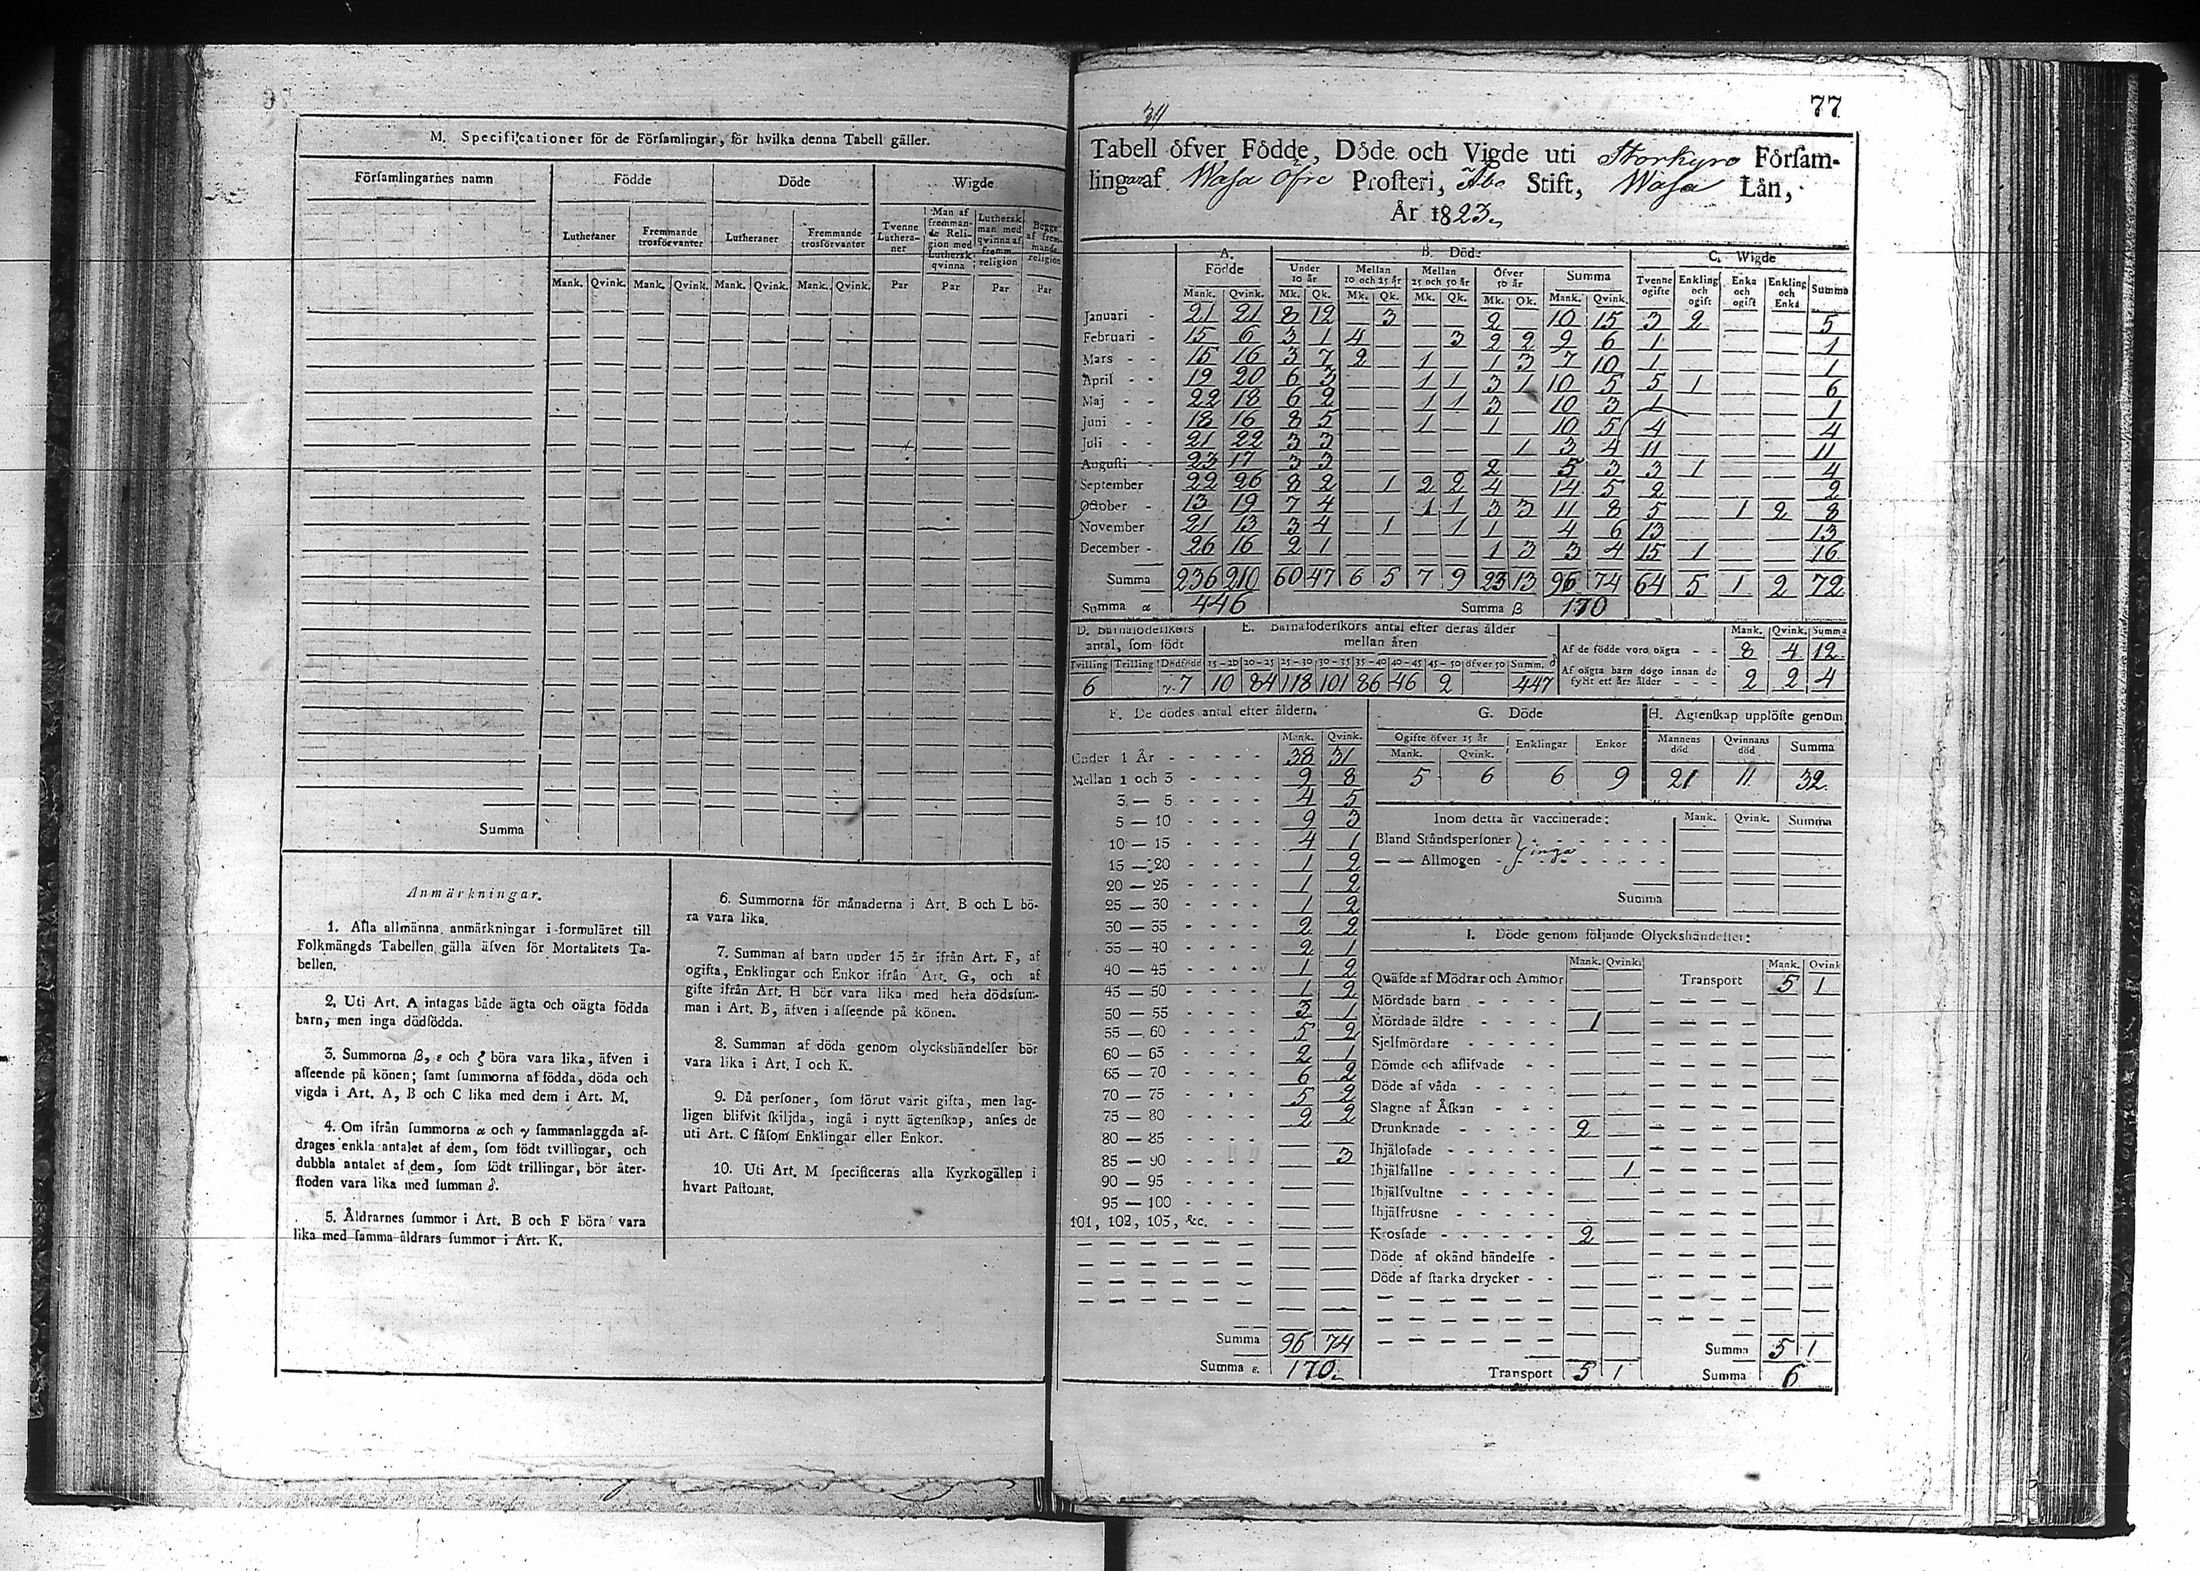 M. Specificationer för de Församlingar, för hvilka denna Tabell gäller.
Församlingarnes namn Födde Döde Wigde
Lutheraner Fremmande trosförvanter Lutheraner Fremmande trosförvanter Tvenne Lutheraner Man af fremmande Religion med Luthersk qvinna Luthersk man med qvinna af fremm. religion Begge af fremmande religion
Mank. Qvink. Mank. Qvink. Mank. Qvink. Mank. Qvink. Par Par Par Par
Summa
Anmärkningar.
1. Alla allmänna anmärkningar i formuläret till
Folkmängds Tabellen gälla äfven för Mortalitets Ta-
bellen.
2. Uti Art. A intagas både ägta och oägta födda
barn, men inga dödfödda.
3. Summorna β, ε och ζ böra vara lika, äfven i
afseende på könen; samt summorna af födda, döda och
vigda i Art. A, B och C lika med dem i Art. M.
4. Om ifrån summorna α och γ sammanlaggda af-
drages enkla antalet af dem, som födt tvillingar, och
dubbla antalet af dem, som födt trillingar, bör åter-
stoden vara lika med summan δ.
5. Åldrarnes summor i Art. B och F böra vara
lika med samma åldrars summor i Art. K.
6. Summorna för månaderna i Art. B och L bö-
ra vara lika.
7. Summan af barn under 15 år ifrån Art. F, af
ogifta, Enklingar och Enkor ifrån Art. G, och af
gifte ifrån Art. H bör vara lika med hela dödssum-
man i Art. B, äfven i afseende på könen.
8. Summan af döda genom olyckshändelser bör
vara lika i Art. I och K.
9. Då personer, som förut varit gifta, men lag-
ligen blifvit skiljda, ingå i nytt ägtenskap, anses de
uti Art. C såsom Enklingar eller Enkor.
10. Uti Art. M specificeras alla Kyrkogällen i
hvart Pastorat.
77
Tabell öfver Födde, Döde och Vigde uti Storkyro Församlingar
af Wasa öfre Prosteri, Åbo Stift, Wasa Län,
År 1823
A. Födde B. Döde C. Wigde
Under 10 år Mellan 10 och 25 år Mellan 25 och 50 år Öfver 50 år Summa Tvenne ogifte Enkling och ogift Enka och ogift Enkling och Enka Summa
Mank. Qvink. Mk. Qk. Mk. Qk. Mk. Qk. Mk. Qk. Mank. Qvink.
Januari 21 21 8 12 — 3 — — 2 — 10 15 3 2 — — 5
Februari 15 6 3 1 4 — — 3 2 2 9 6 1 — — — 1
Mars 15 16 3 7 2 — 1 — 1 3 7 10 1 — — — 1
April 19 20 6 3 — — 1 1 3 1 10 5 5 1 — — 6
Maj 22 18 6 2 — — 1 1 3 — 10 3 1 — — — 1
Juni 18 16 8 5 — — 1 — 1 — 10 5 4 — — — 4
Juli 21 22 3 3 — — — — — 1 3 4 11 — — — 11
Augusti 23 17 3 3 — — — — 2 — 5 3 3 1 — — 4
September 22 26 8 2 — 1 2 2 4 — 14 5 2 — — — 2
October 13 19 7 4 — — 1 1 3 3 11 8 5 — 1 2 8
November 21 13 3 4 — 1 — 1 1 — 4 6 13 — — — 13
December 26 16 2 1 — — — — 1 3 3 4 15 1 — — 16
Summa 236 210 60 47 6 5 7 9 23 13 96 74 64 5 1 2 72
Summa α 446 Summa β 170
D. Barnaföderskors antal, som födt
Tvilling Trilling Dödfödd
6 γ. 7
E. Barnaföderskors antal efter deras ålder mellan åren
15-20 20-25 25-30 30-35 35-40 40-45 45-50 öfver 50 Summ. δ
10 84 118 101 86 46 2 447
Mank. Qvink. Summa
Af de födde voro oägta 8 4 12
Af oägta barn dogo innan de fyllt ett års ålder 2 2 4
F. De dödes antal efter åldern.
Mank. Qvink.
Under 1 År 38 31
Mellan 1 och 3 9 8
3 — 5 4 5
5 — 10 9 3
10 — 15 4 1
15 — 20 1 2
20 — 25 1 2
25 — 30 1 2
30 — 35 2 2
35 — 40 2 1
40 — 45 1 2
45 — 50 1 2
50 — 55 3 1
55 — 60 5 2
60 — 65 2 1
65 — 70 6 2
70 — 75 5 2
75 — 80 2 2
80 — 85
85 — 90 — 3
90 — 95
95 — 100
101, 102, 103, &c.
Summa 96 74
Summa ε. 170
G. Döde
Ogifte öfver 15 år Enklingar Enkor
Mank. Qvink.
5 6 6 9
H. Ägtenskap upplöste genom
Mannens död Qvinnans död Summa
21 11 32
Inom detta år vaccinerade: Mank. Qvink. Summa
Bland Ståndspersoner
— — Allmogen } inga
Summa
I. Döde genom följande Olyckshändelser:
Mank. Qvink. Mank. Qvink
Quäfde af Mödrar och Ammor Transport 5 1
Mördade barn
Mördade äldre 1
Sjelfmördare
Dömde och aflifvade
Döde af våda
Slagne af Åskan
Drunknade 2
Ihjälosade
Ihjälfallne — 1
Ihjälsvultne
Ihjälfrusne
Krossade 2
Döde af okänd händelse
Döde af starka drycker
Summa 5 1
Transport 5 1 Summa 6